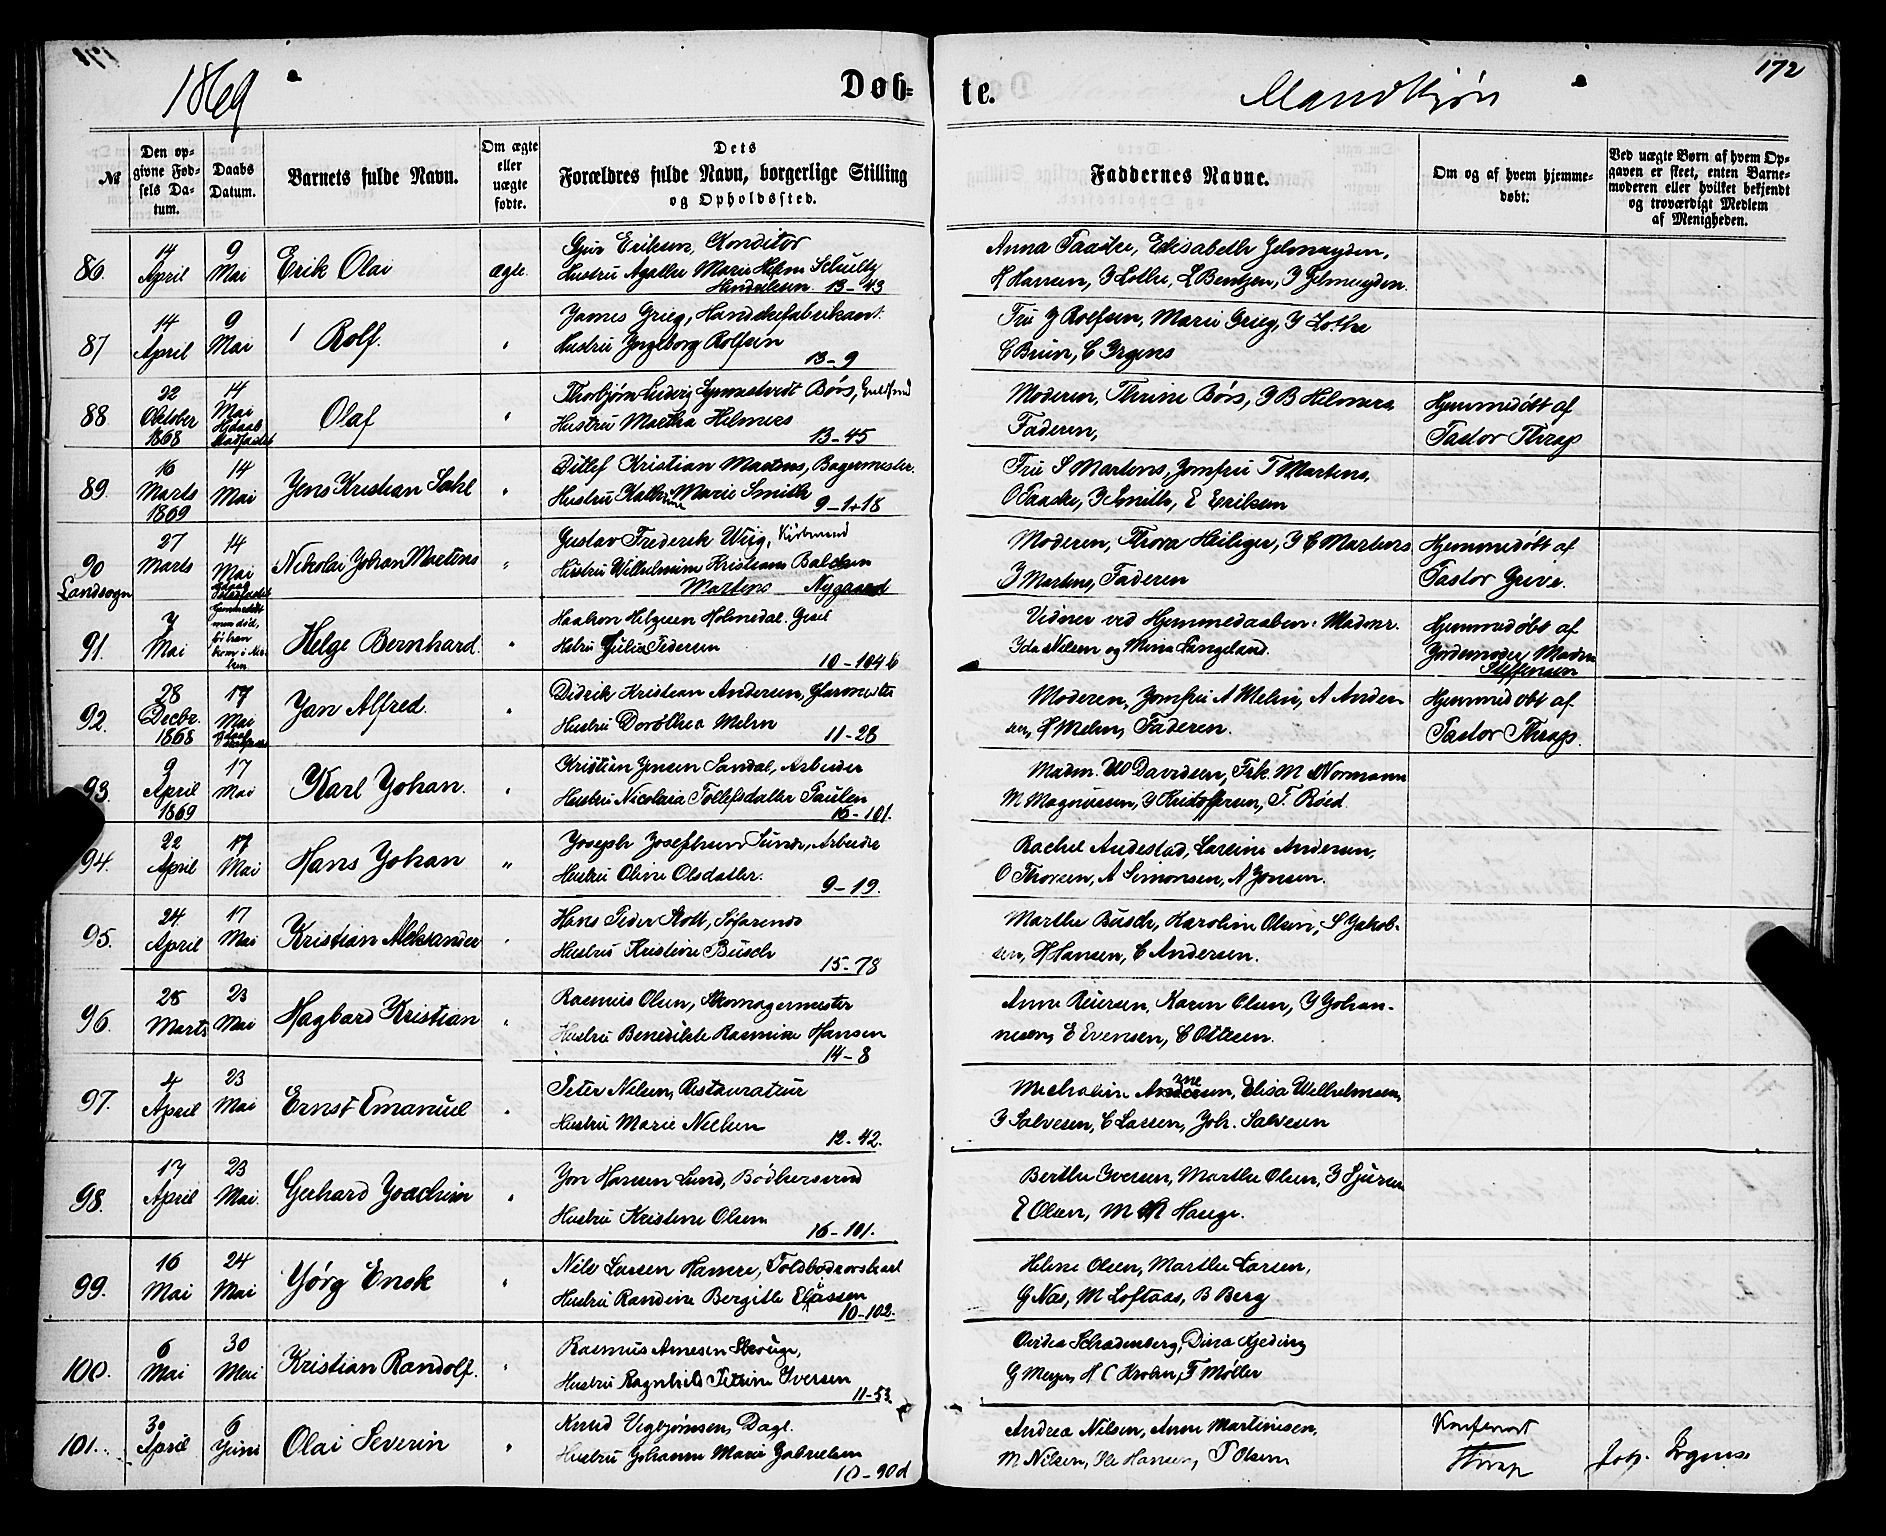 1869
Døb-
te.
Mandkjøn
172
No
Den op-
givne Fød-
sels Da-
tum.
Daabs
Datum.
Barnets fulde Navn.
Om ægte
eller
uægte
fødte.
Dets
Forældres fulde Navn, borgerlige Stilling
og Opholdssted.
Faddernes Navne.
Om og af hvem hjemme-
døbt.
Ved uægte Børn af hvem Op-
gaven er skeet, enten Barne-
moderen eller hvilket bekjendt
og troværdigt Medlem
af Menigheden.
86. 14 April 9 Mai Erik Olai ægte.
Eriksen, Konditor
Hustru Agathe Marie Schultz
Hendriksen. 13-43
Anna Taaske, Elisabeth Jelmeyden,
H Hansen, J Lothe, L Bentzen, J Jelmeyden.
87 14 April 9 Mai Rolf.
James Grieg, Handskefabrikant.
Hustru Yngeborg Rolfsen
13-9
Fru J Rolfsen, Marie Grieg, J Lothe
C Bruun, C Irgens
88 22 Oktober 1868 14 Mai Hjdaab Stadfæstet Olaf
Thorbjørn Ludvig Børs,
Hustru Martha Hilmers
13-45
Moderen, Thrine Børs, J B Hilmers
Faderen,
Hjemmedøbt af
Pastor Thrap
89. 16 Marts 1869 14 Mai Jens Kristian Sahl
Ditlef Kristian Martens, Bagermester.
Hustru Kathrine Marie Smith
9-1+18
Fru S Martens, Jomfru T Martens,
O Taaske, J Smith, E Eriksen
90 Landsogn 27 Marts 14 Mai Nikolai Johan Martens
Gustav Frederik Wiig,
Hustru Wilhelmine Kristiane Balchen
Martens Nygaard
Moderen, Thora Heiliger, J C Martens
J Martens, Faderen
Hjemmedøbt af
Pastor Greve.
91. 7 Mai Helge Bernhard.
Haakon Helgesen Holmedal. Gesel
Hstru Julia Pedersen
10-104b
Vidner ved Hjemmedaaben: Madmr.
Ida Nilsen og Mina Langeland.
Hjemmedøbt af
Jordemoder Madm
Steffensen
92. 28 Decbr. 1868 17 Mai Jan Alfred.
Didrik Kristian Andersen, Glarmester
Hustru Dorothea Mehn
11-28
Moderen, Jomfru A Mehn, A Ander-
sen, H Mehn, Faderen.
Hjemmedøbt af
Pastor Thrap.
93. 9 April 1869 17 Mai Karl Johan.
Kristian Jensen Sandal, Arbeider
Hustru Nicolaia Tollefsdatter Paulen
16-101.
Madm. W Davidsen, Frk. M Normann
M Magnusen, J Kristoffersen, T. Røed.
94. 22 April 17 Mai Hans Johan
Joseph Josephsen Sunde, Arbeider
Hustru Oline Olsdatter.
9-19.
Rachel Audestad, Lovise Andersen,
O Thorsen, A Simonsen, A Jonsen.
95. 24 April 17 Mai Kristian Aleksander
Hans Peder Stolt, Søfarende
Hustru Kristine Busch
15-78
Marthe Busch, Karoline Olsen, S Jakob-
sen, H Hansen, C Andersen.
96. 28 Marts 23 Mai Hagbard Kristian
Rasmus Olsen, Skomagermester
Hustru Benedikte Rasmine Hansen
14-8
Anne Reiersen, Karen Olsen, J Johan-
nesen, E Evensen, C Ottesen.
97. 4 April 23 Mai Ernst Emanuel
Peter Nilsen, Restauratør
Hustru Marie Nielsen
12-42.
Elisa Wilhelmsen,
J Salvesen, C Larsen, Joh. Salvesen
98. 17 April 23 Mai. Gerhard Joachim
Jon Hansen Lund, Bødkersvend
Hustru Kristine Olsen
16-101.
Berthe Iversen, Marthe Olsen, J Sjursen
E Olsen, M Hauge.
99. 16 Mai 24 Mai Jørg Ensk
Nils Larsen Hamre, Toldbodrorskarl
Hustru Randine Bergitte Eliassen
10-102.
Helene Olsen, Marthe Larsen,
G Næs, M Loftaas, B Berg
100. 6 Mai 30 Mai Kristian Randolf.
Rasmus Arnesen Skouge,
Hustru Ragnhild Petrine Iversen
11-53
Ovidea Schradenberg, Dina Kjeding
G Meyer, H C Krohn, F Møller
101. 30 April 6 Juni Olai Severin
Knud Vigbjørnsen, Dagl.
Hustru Johanne Marie Gabrielsen
10-90d
Andrea Nilsen, Anne Martinesen,
M Nilsen, Ole Hansen, T Olsen
Konfereret
Thrap
Joh. Irgens.